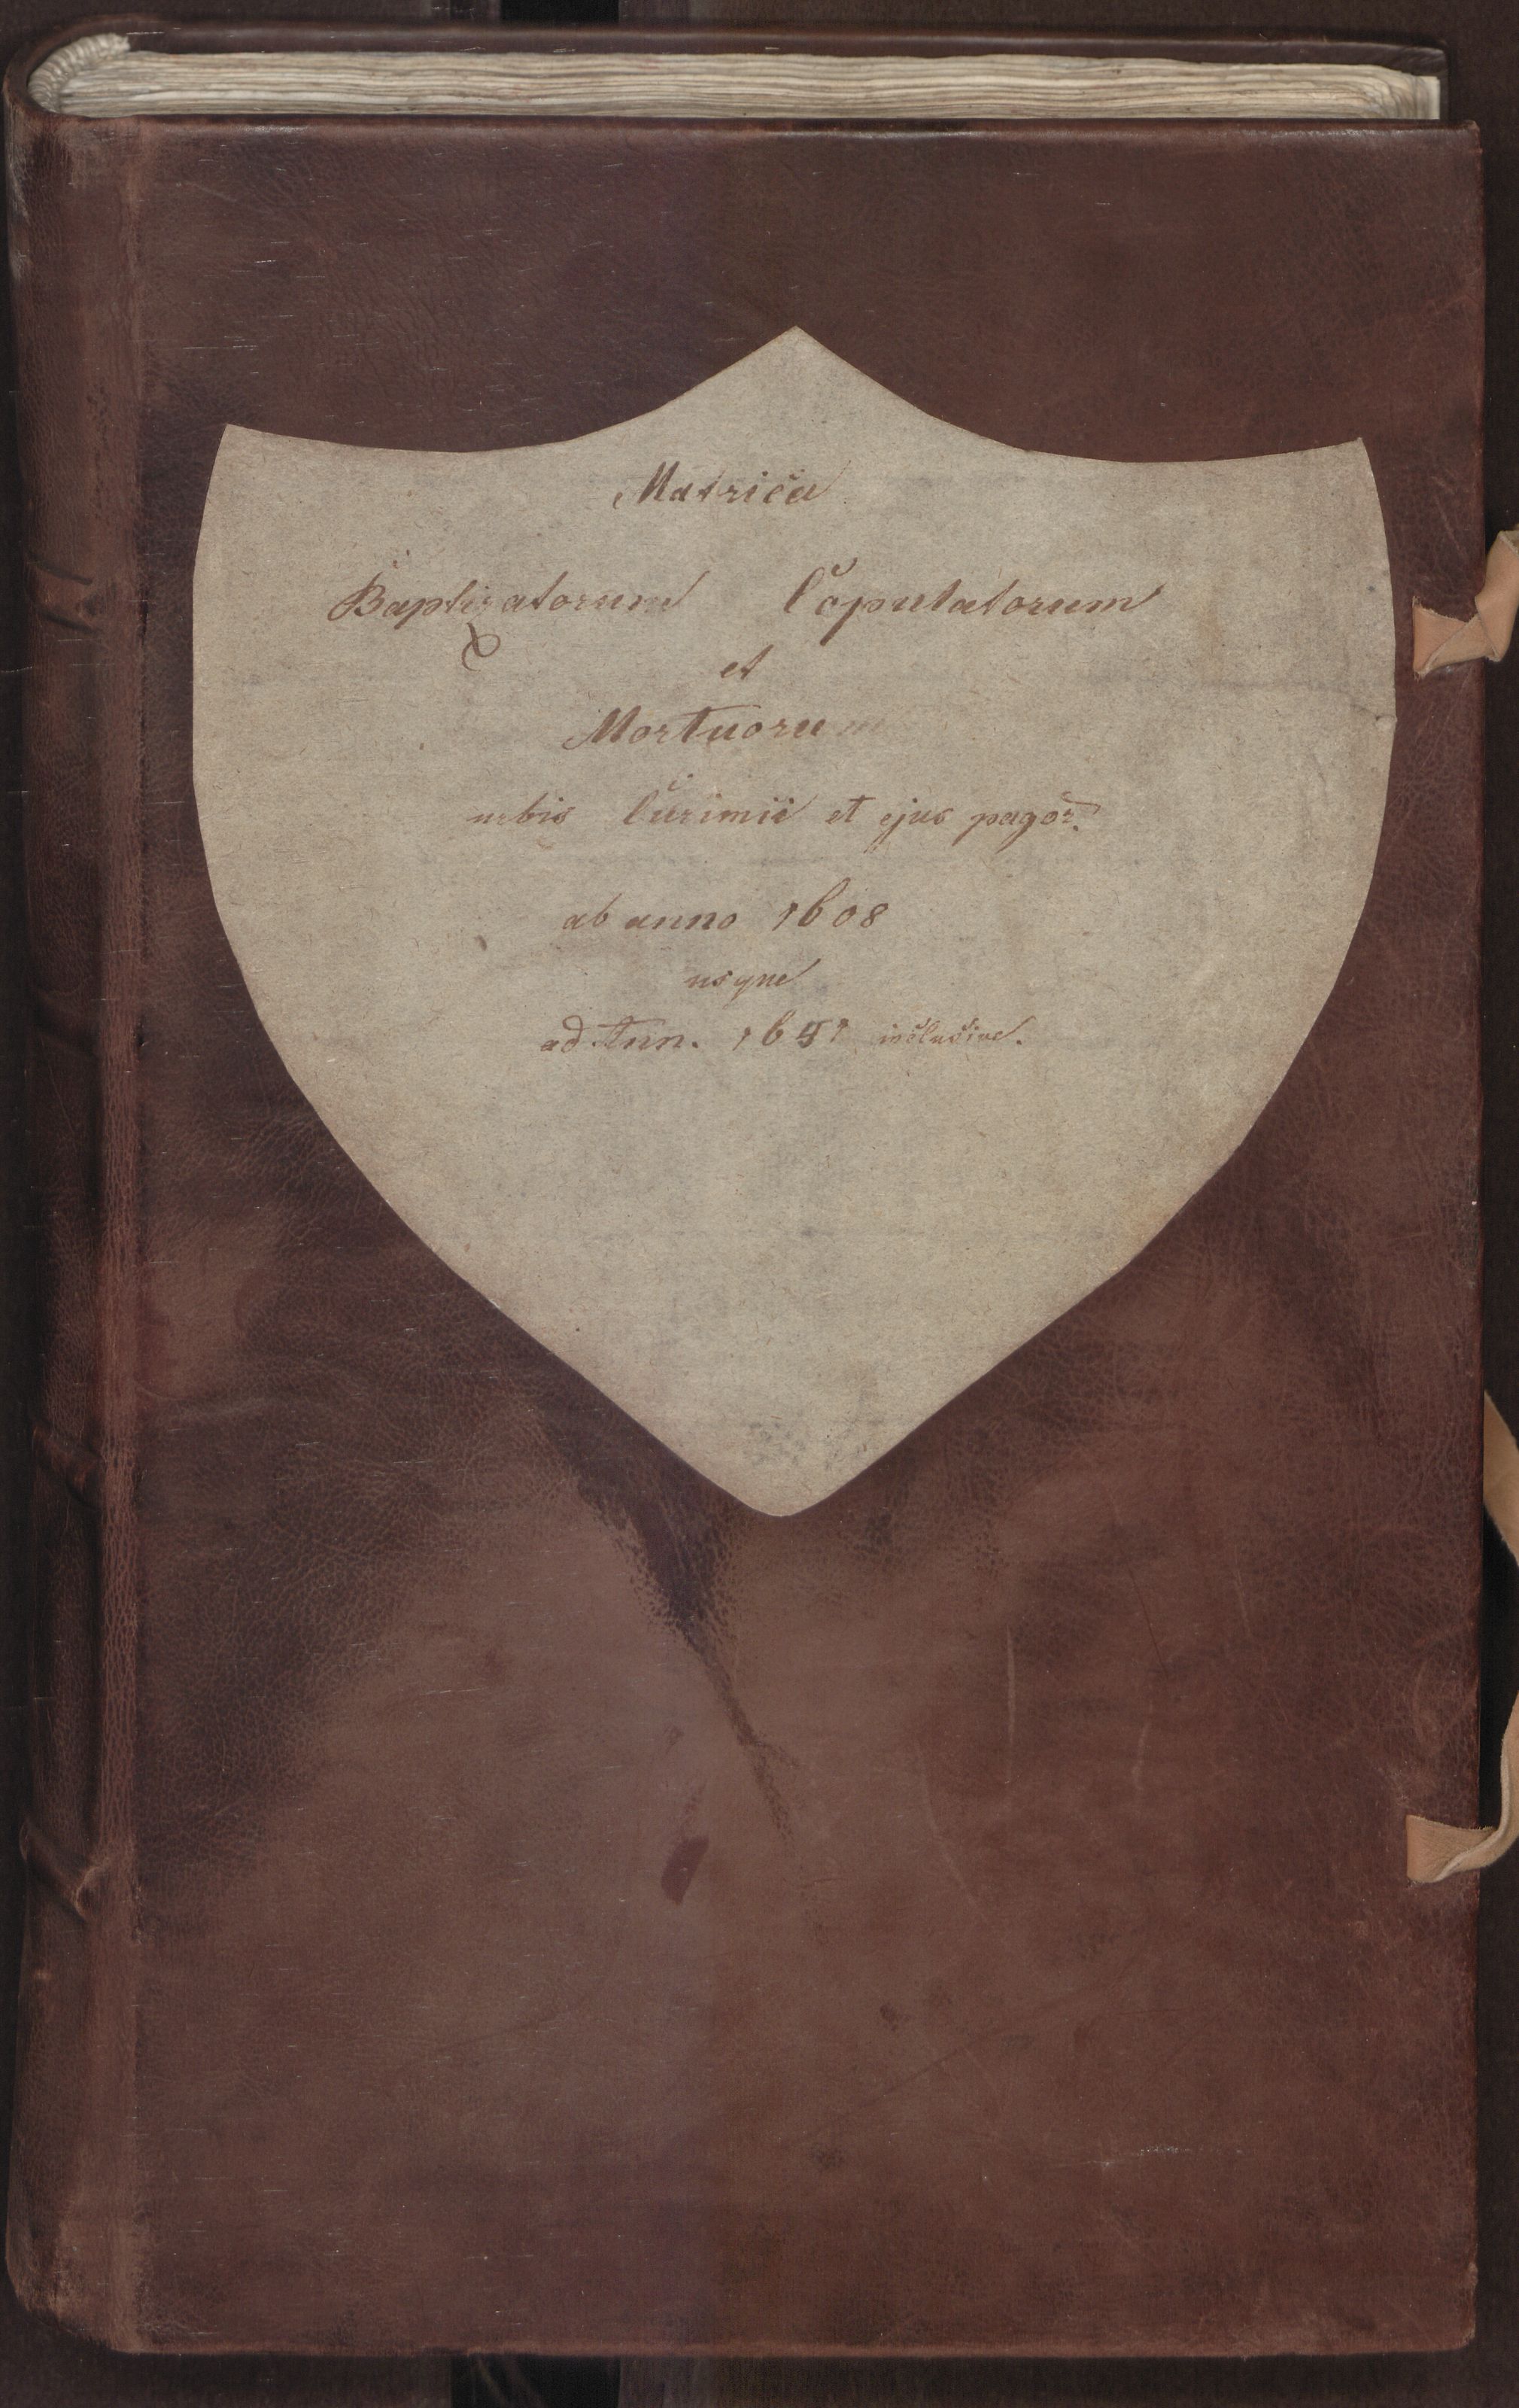 Matrica
Baptizatorum Copulatorum
et
Mortuorum
urbis Curimii et ejus pagor.
ab anno 1608
usque
ad Ann. 1651 inclusive.